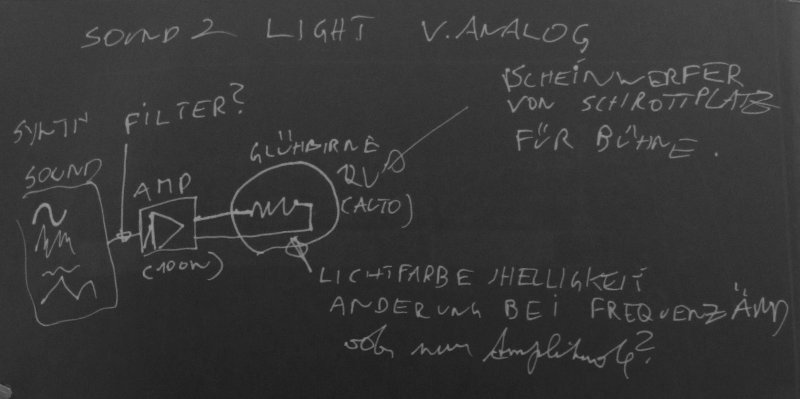 SOUND 2 LIGHT V. ANALOG
SCHEINWERFER
VON SCHROTTPLATZ
FÜR BÜHNE.
FILTER?
SYNTH
SOUND
AMP
(100W)
GLÜHBIRNE
(AUTO)
LICHTFARBE /HELLIGKEIT
ÄNDERUNG BEI FREQUENZÄND
oder nur Amplitude?